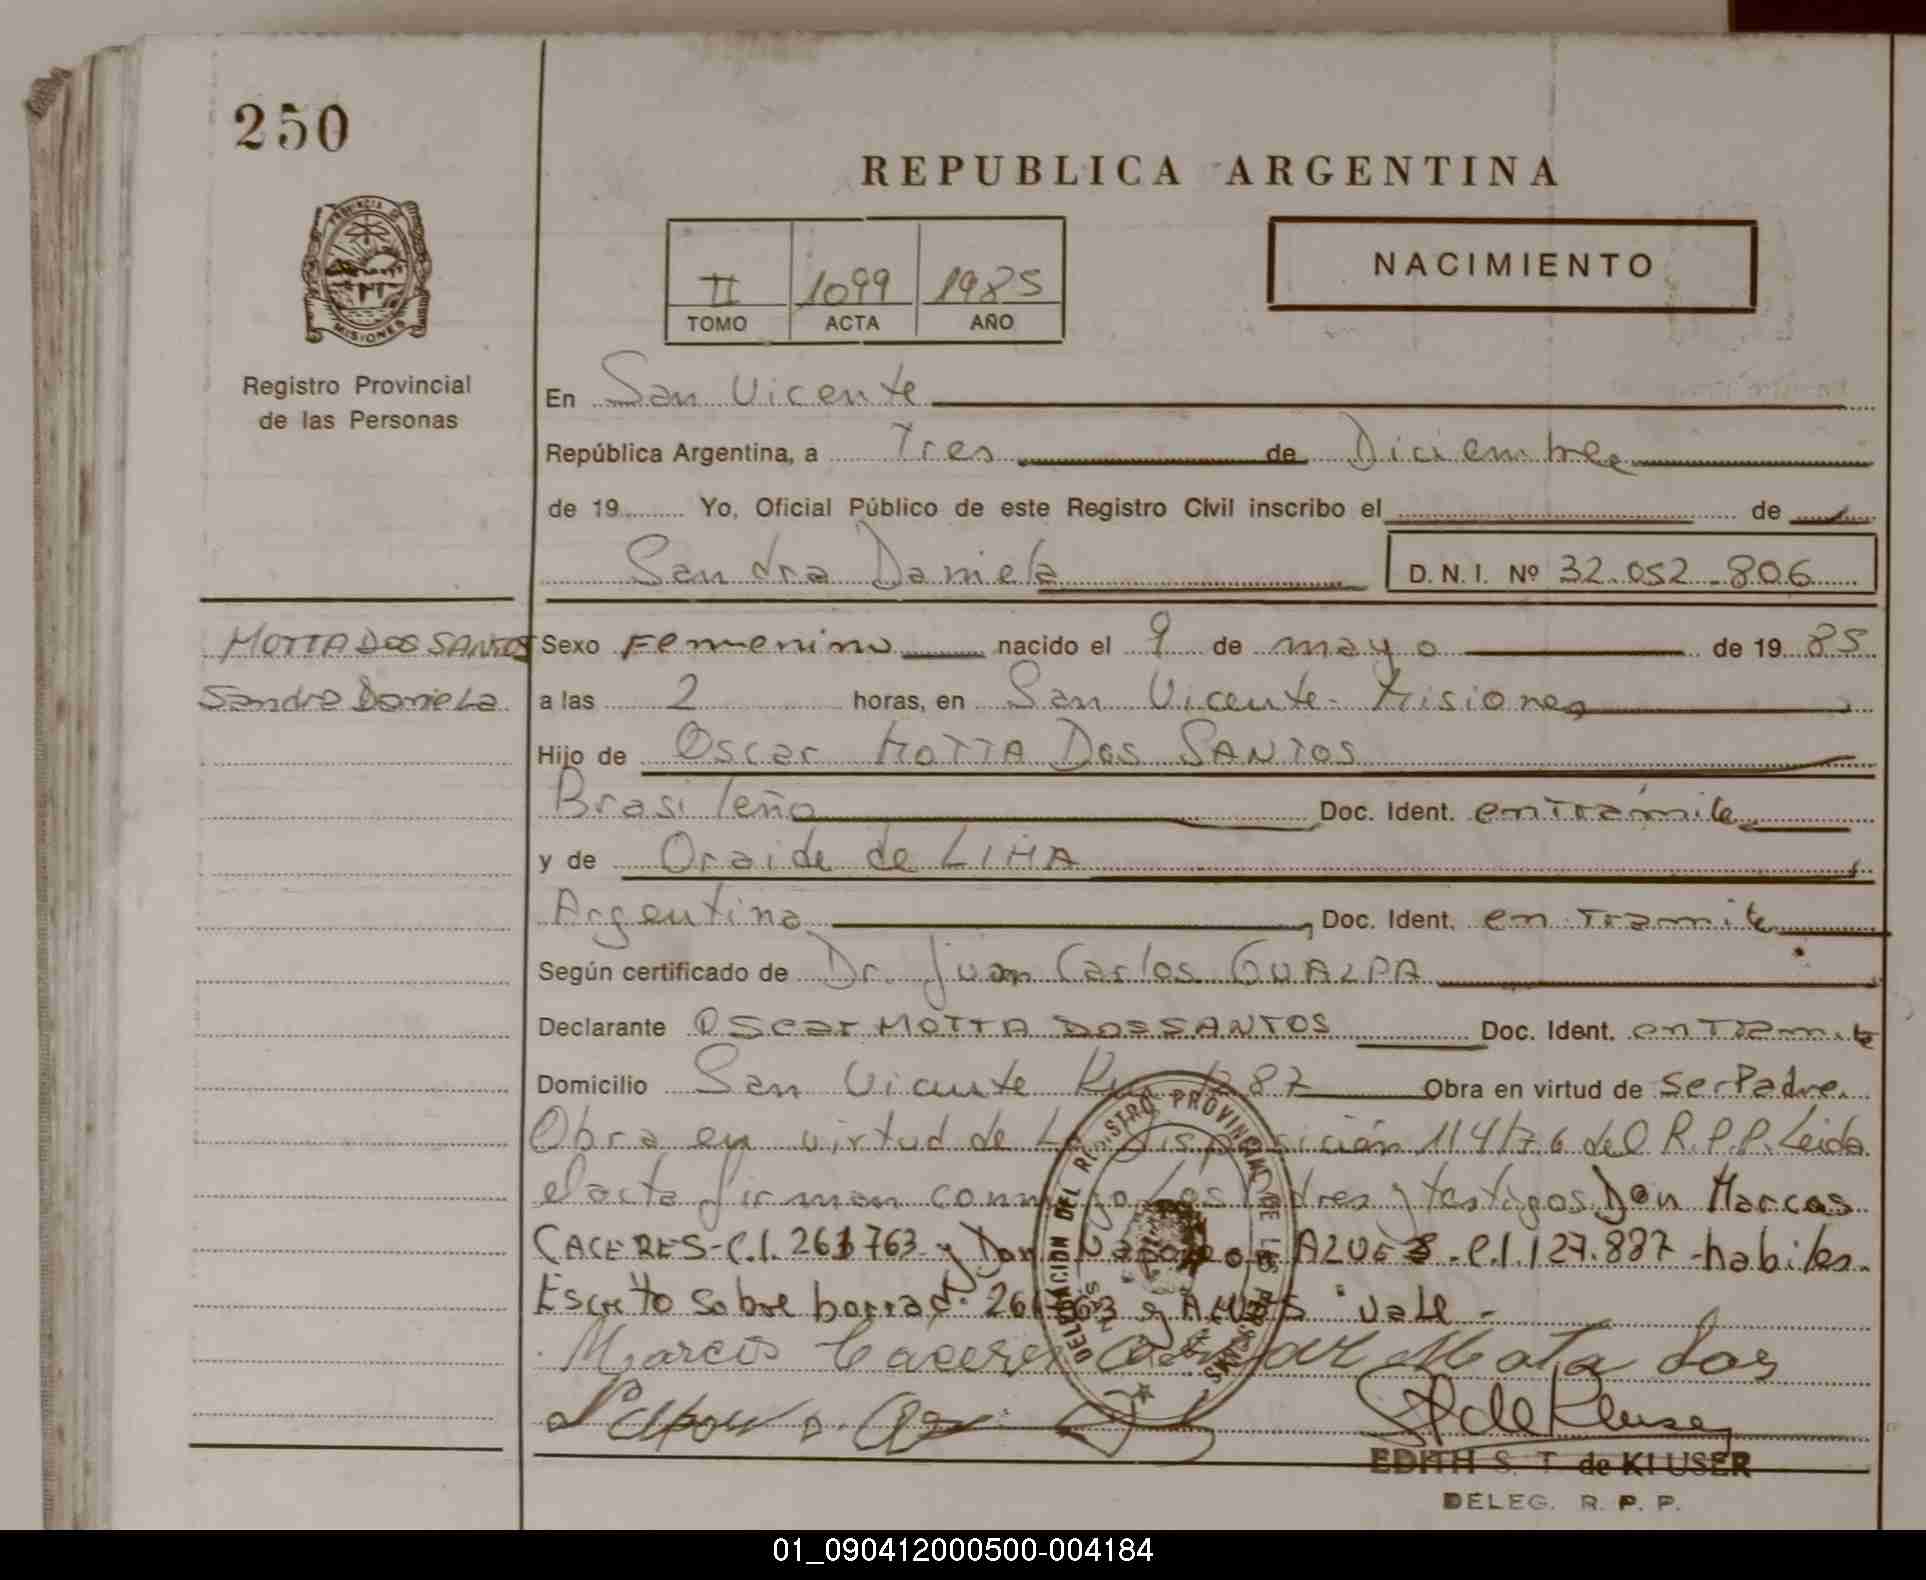 250
REPUBLICA ARGENTINA
PROVINCIA DE
MISIONES
Registro Provincial
de las Personas
II 1099 1985
TOMO ACTA AÑO
NACIMIENTO
En San Vicente
República Argentina, a Tres de Diciembre
de 19 Yo, Oficial Público de este Registro Civil inscribo el de
Sandra Daniela
D. N. I. Nº 32.052.806
MOTTA DOS SANTOS
Sandra Daniela
Sexo Femenino nacido el 9 de mayo de 19 85
a las 2 horas, en San Vicente - Misiones
Hijo de Oscar MOTTA DOS SANTOS
Brasileño Doc. Ident. en Trámite
y de Oraide de LIMA
Argentina, Doc. Ident. en Tramite
Según certificado de Dr. Juan Carlos GUALPA
Declarante Oscar MOTTA DOS SANTOS Doc. Ident. en Tramite
Domicilio San Vicente 1287 Obra en virtud de Ser Padre.
Obra en virtud de La disposición 114/76 del R.P.P. Leida
el acta firman conmigo Los Padres y testigos Don Marcos
CACERES - C.I. 261763 y Don AZUES - C.I. 127.887 - habiles.
Escrito sobre borrad. y vale -
Marcos Caceres Mota dos
DELEGACION DEL REGISTRO PROVINCIAL DE LAS PERSONAS
EDITH S. T. de KLUSER
DELEG. R. P. P.
01_090412000500-004184